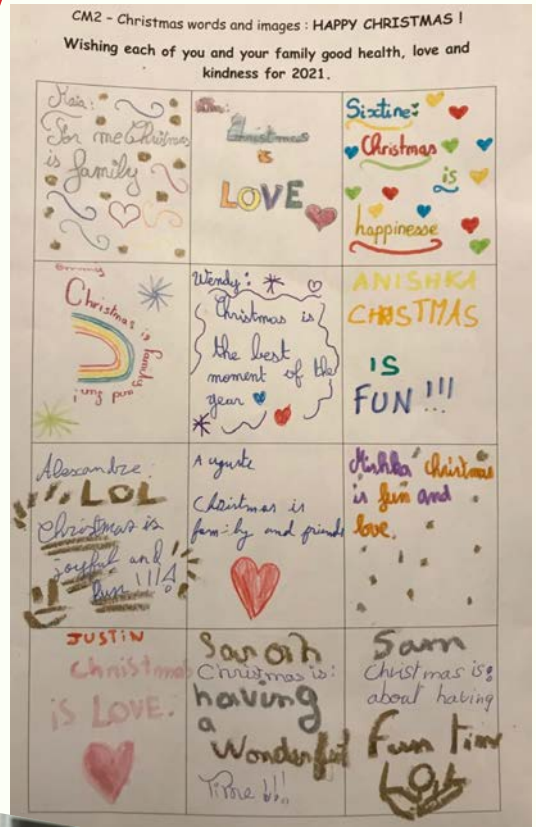 CM2 – Christmas words and images : HAPPY CHRISTMAS !
Wishing each of you and your family good health, love and
kindness for 2021.
Kaia:
For me Christmas
is family
Christmas
is
LOVE
Sixtine:
Christmas
is
happinesse
Christmas is family
and fun!
Wendy:
Christmas is
the best
moment of the
year
ANISHKA
CHISTMAS
IS
FUN !!!
Alexandre:
LOL
Christmas is
joyful and
fun !!!!
Auguste
Christmas is
family and friends
Mishka christmas
is fun and
love.
JUSTIN
Christmas
is LOVE.
Sarah
Christmas is:
having
a
Wonderful
Time !!!
Sam
Christmas is:
about having
Fun Time
LOL